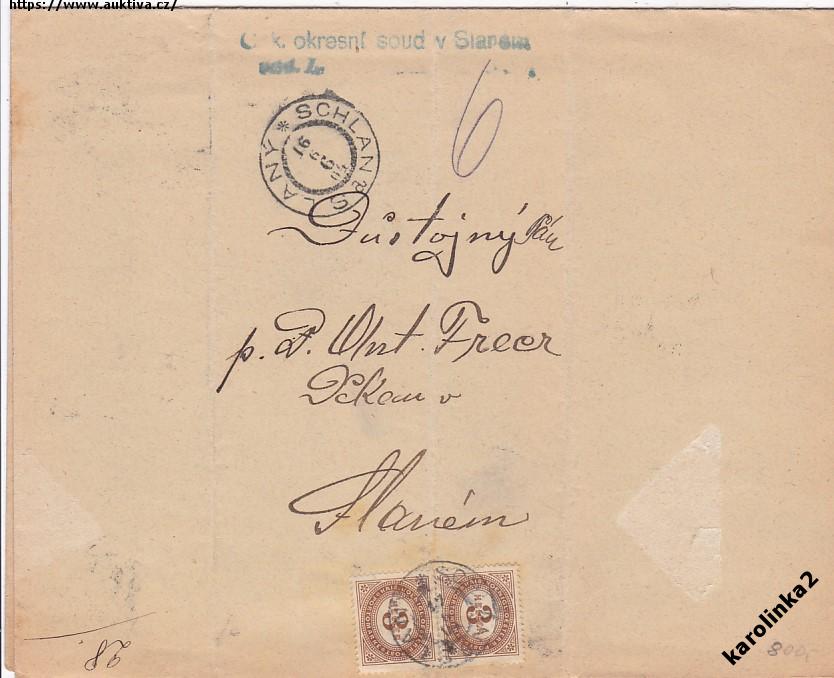 https://www.auktiva.cz/
C. k. okresní soud v Slaném
odd. I.
6
SCHLAN * SLANÝ
16
6
Důstojný Pán
p. P. Ant. Frecr
Děkan v
Slaném
3
3
28
800,-
karolinka2